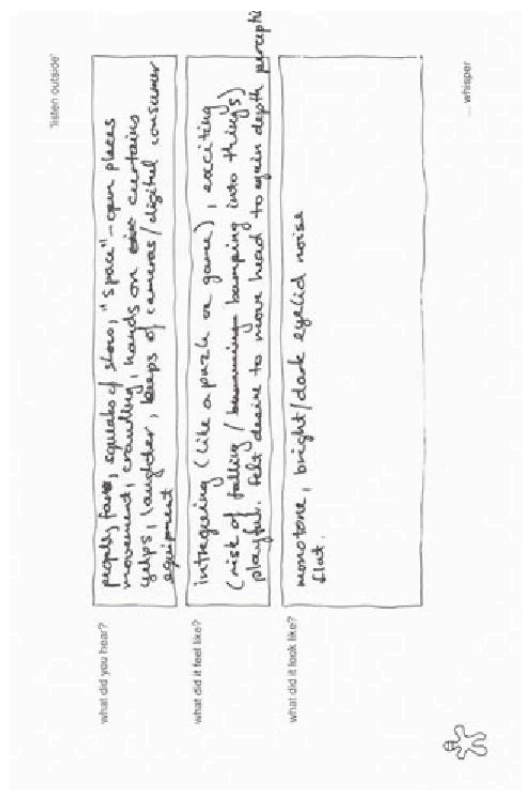 'listen outside'
what did you hear?
people, fans, squeaks of shoes, "space" - open places
movement, crawling, hands on curtains
yelps, laughter, beeps of cameras/digital consumer
equipment
what did it feel like?
intregueing (like a puzle or game), exciting
(risk of falling / bumping into things)
playful. Felt desire to move head to again depth percepti
what did it look like?
monotone, bright/dark eyelid noise
flat.
... whisper